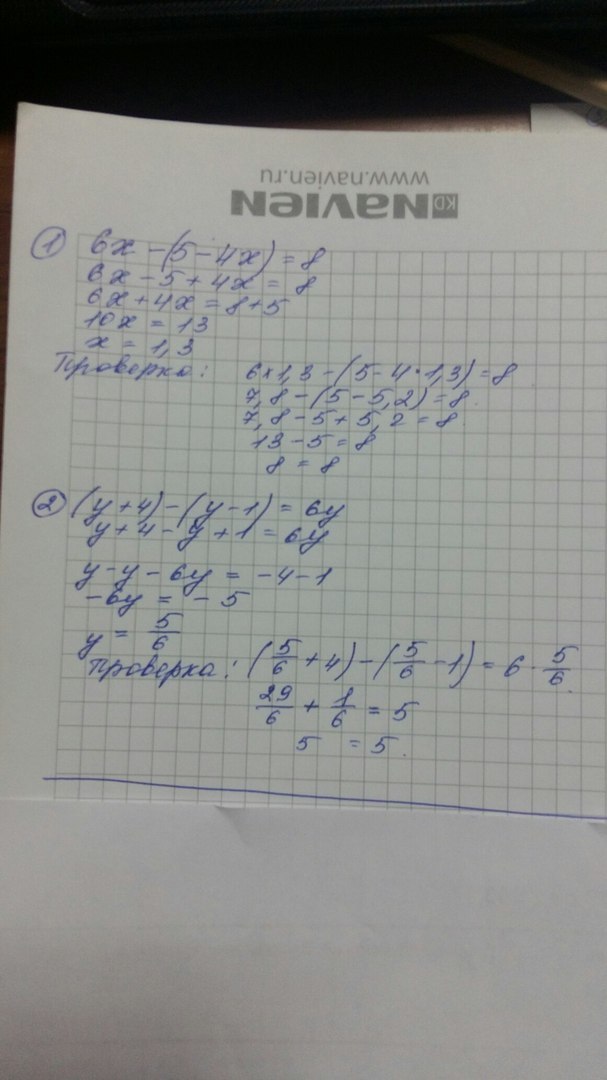 www.navien.ru
KD NAVIEN
① 6x - (5 - 4x) = 8
6x - 5 + 4x = 8
6x + 4x = 8 + 5
10x = 13
x = 1,3
Проверка: 6×1,3 - (5 - 4·1,3) = 8
7,8 - (5 - 5,2) = 8
7,8 - 5 + 5,2 = 8
13 - 5 = 8
8 = 8
② (y + 4) - (y - 1) = 6y
y + 4 - y + 1 = 6y
y - y - 6y = -4 - 1
-6y = -5
y = 5/6
Проверка: (5/6 + 4) - (5/6 - 1) = 6 · 5/6
29/6 + 1/6 = 5
5 = 5.